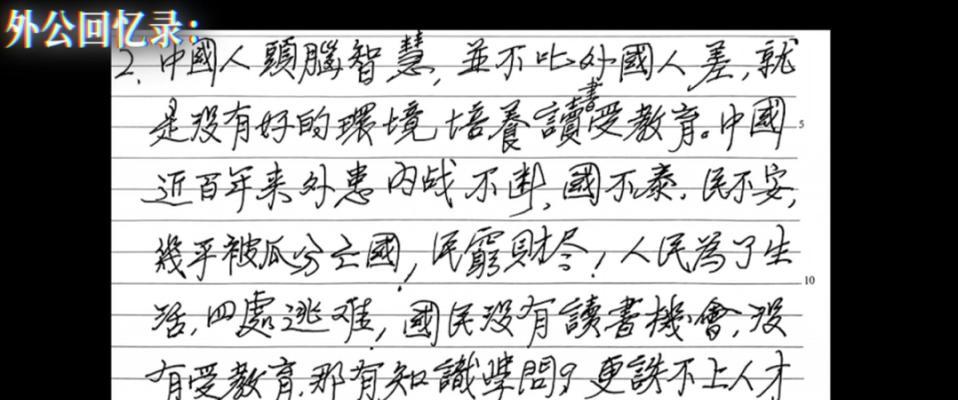 外公回忆录：
2. 中國人頭腦智慧，並不比外國人差，就
是没有好的環境培養讀書受教育。中國
近百年来外患内战不断，國不泰.民不安，
幾乎被瓜分亡國，民窮財尽，人民為了生
活，四處逃难，國民没有讀書機會，没
有受教育.那有知識學問？更談不上人才
5
10